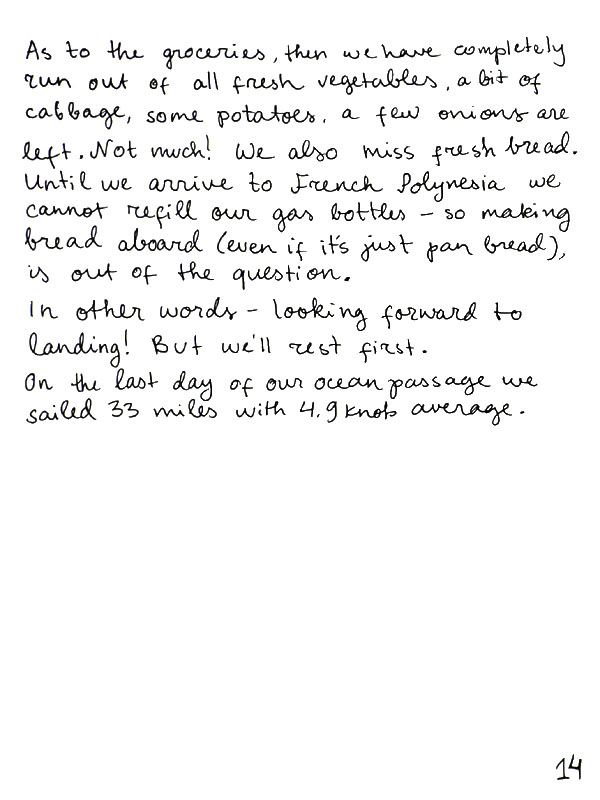 As to the groceries, then we have completely
run out of all fresh vegetables, a bit of
cabbage, some potatoes, a few onions are
left. Not much! We also miss fresh bread.
Until we arrive to French Polynesia we
cannot refill our gas bottles - so making
bread aboard (even if it's just pan bread),
is out of the question.
In other words - looking forward to
landing! But we'll rest first.
On the last day of our ocean passage we
sailed 33 miles with 4.9 knots average.
14